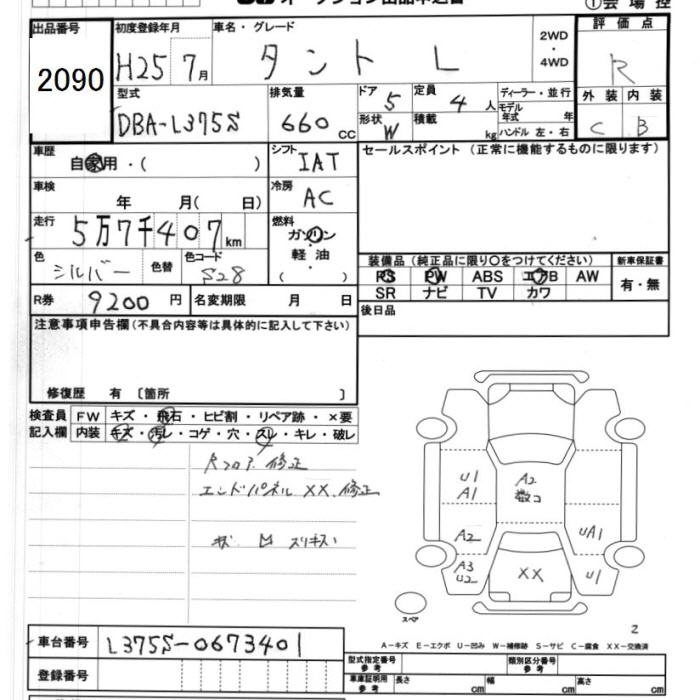 出品番号 初度登録年月 車名・グレード 評価点
2090 H25 7月 タント L 2WD・4WD R
型式 排気量 ドア 5 定員 4人 ディーラー・並行 外装 内装
DBA-L375S 660cc 形状 W 積載 kg モデル年式 年 ハンドル 左・右 C B
車歴 自家用・( ) シフト IAT セールスポイント (正常に機能するものに限ります)
車検 年 月( 日) 冷房 AC
走行 5万7千407km 燃料 ガソリン・軽油・( )
色 シルバー 色替 色コード S28 装備品 (純正品に限り○をつけてください) 新車保証書
PS PW ABS エアB AW 有・無
SR ナビ TV カワ
R券 9200円 名変期限 月 日 後日品
注意事項申告欄(不具合内容等は具体的に記入して下さい)
修復歴 有 〔箇所 〕
検査員 FW キズ・飛石・ヒビ割・リペア跡・×要
記入欄 内装 キズ・汚レ・コゲ・穴・スレ・キレ・破レ
Rフロア 修正
エンドパネル XX、修正
U1 A2
A1
A2 UA1
A3
U2 XX U1
スペア
2
A-キズ E-エクボ U-凹み W-補修跡 S-サビ C-腐食 XX-交換済
車台番号 L375S-0673401
型式指定番号 参考 類別区分番号 参考
登録番号 車庫証明用 参考 長さ cm 幅 cm 高さ cm